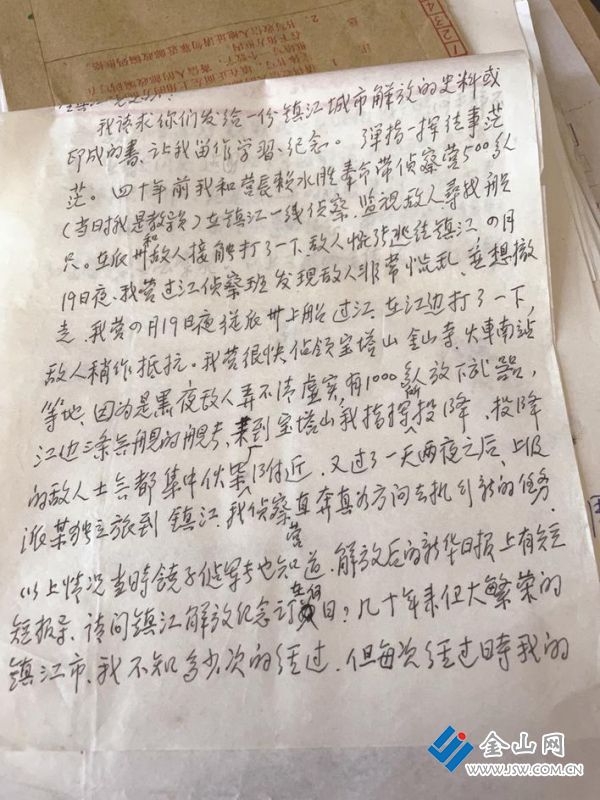 我请求你们发给一份镇江城市解放的史料或
印成的书、让我留作学习、纪念。弹指一挥往事茫
茫。四十年前我和营长赖水胜奉命带侦察营500多人
(当时我是教导)在镇江一线侦察、监视敌人寻找船
只。在 和敌人接触打了一下、敌人慌张逃往镇江の月
19日夜、我营过江侦察班发现敌人非常慌乱、並想撤
走、我营の月19日夜 上船过江、在江边打了一下,
敌人稍作抵抗。我营很快佔领宝塔山 金山寺、火車南站
等地、因为是黑夜敌人弄不清虚实,有1000多人放下武器,
江边三条兵舰的舰长、来到宝塔山我指挥所投降、投降
的敌人士兵都集中伙 附近、又过了一天两夜之后、上级
派某独立旅到镇江、我侦察营直奔 方向去执行新的任务.
以上情况当時 也知道、解放后的新华日报上有短
短报导、请问镇江解放纪念订在何日?几十年来 大繁荣的
镇江市、我不知多少次的经过、但每次经过時我的
金山网
WWW.JSW.COM.CN